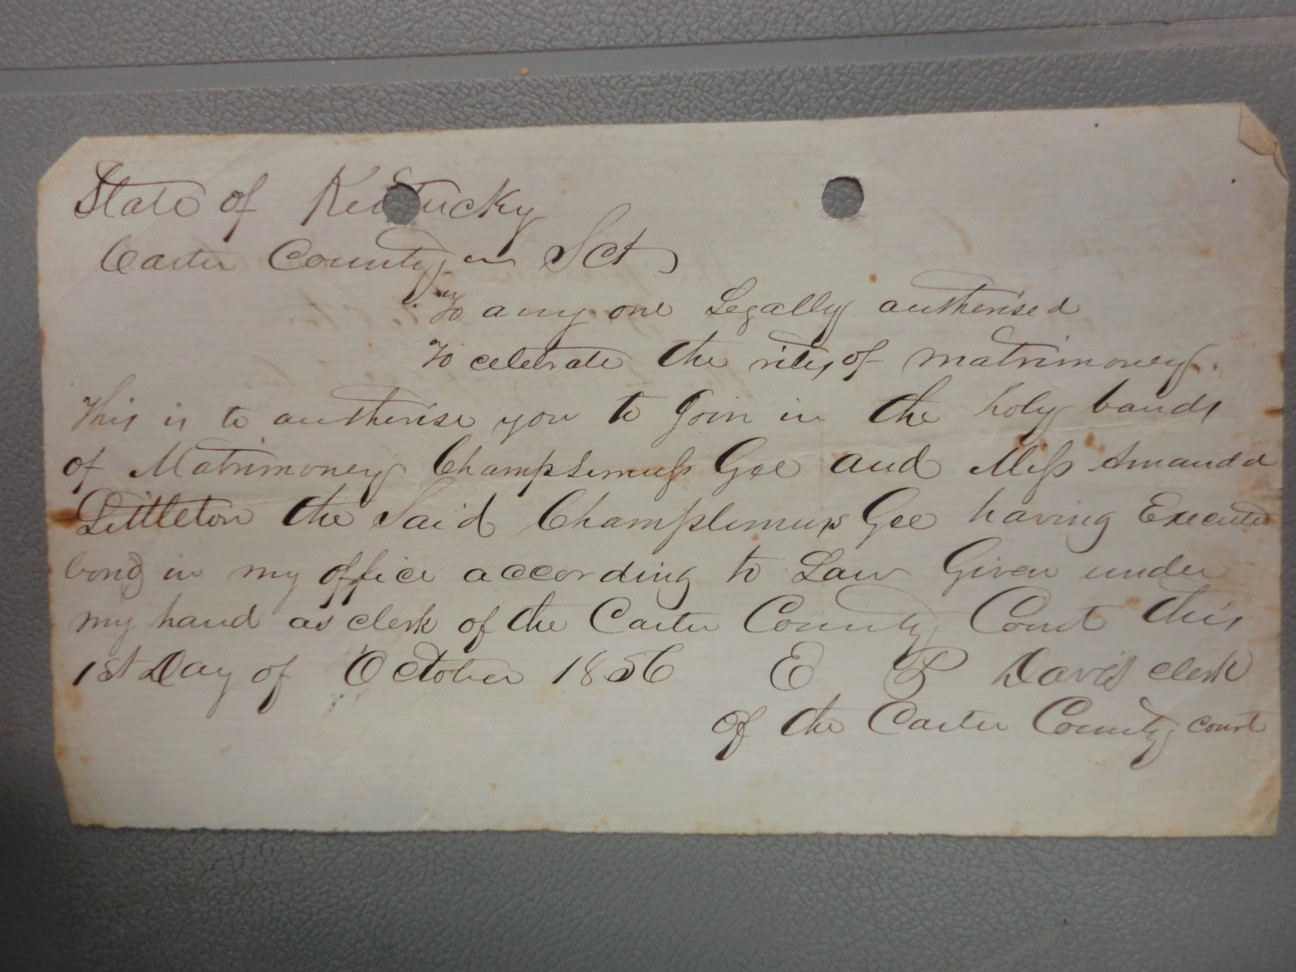 State of Kentucky
Carter County Sct
To any one Legally autherised
To celebrate the rites of matrimoney.
This is to autherise you to Join in the holy bands
of Matrimoney Champlimuss Gee and Miss Amanda
Littleton the Said Champlimuss Gee having Executed
bond in my office according to Law Given under
my hand as clerk of the Carter County Court this
1st Day of October 1856 E P Davis clerk
of the Carter County court